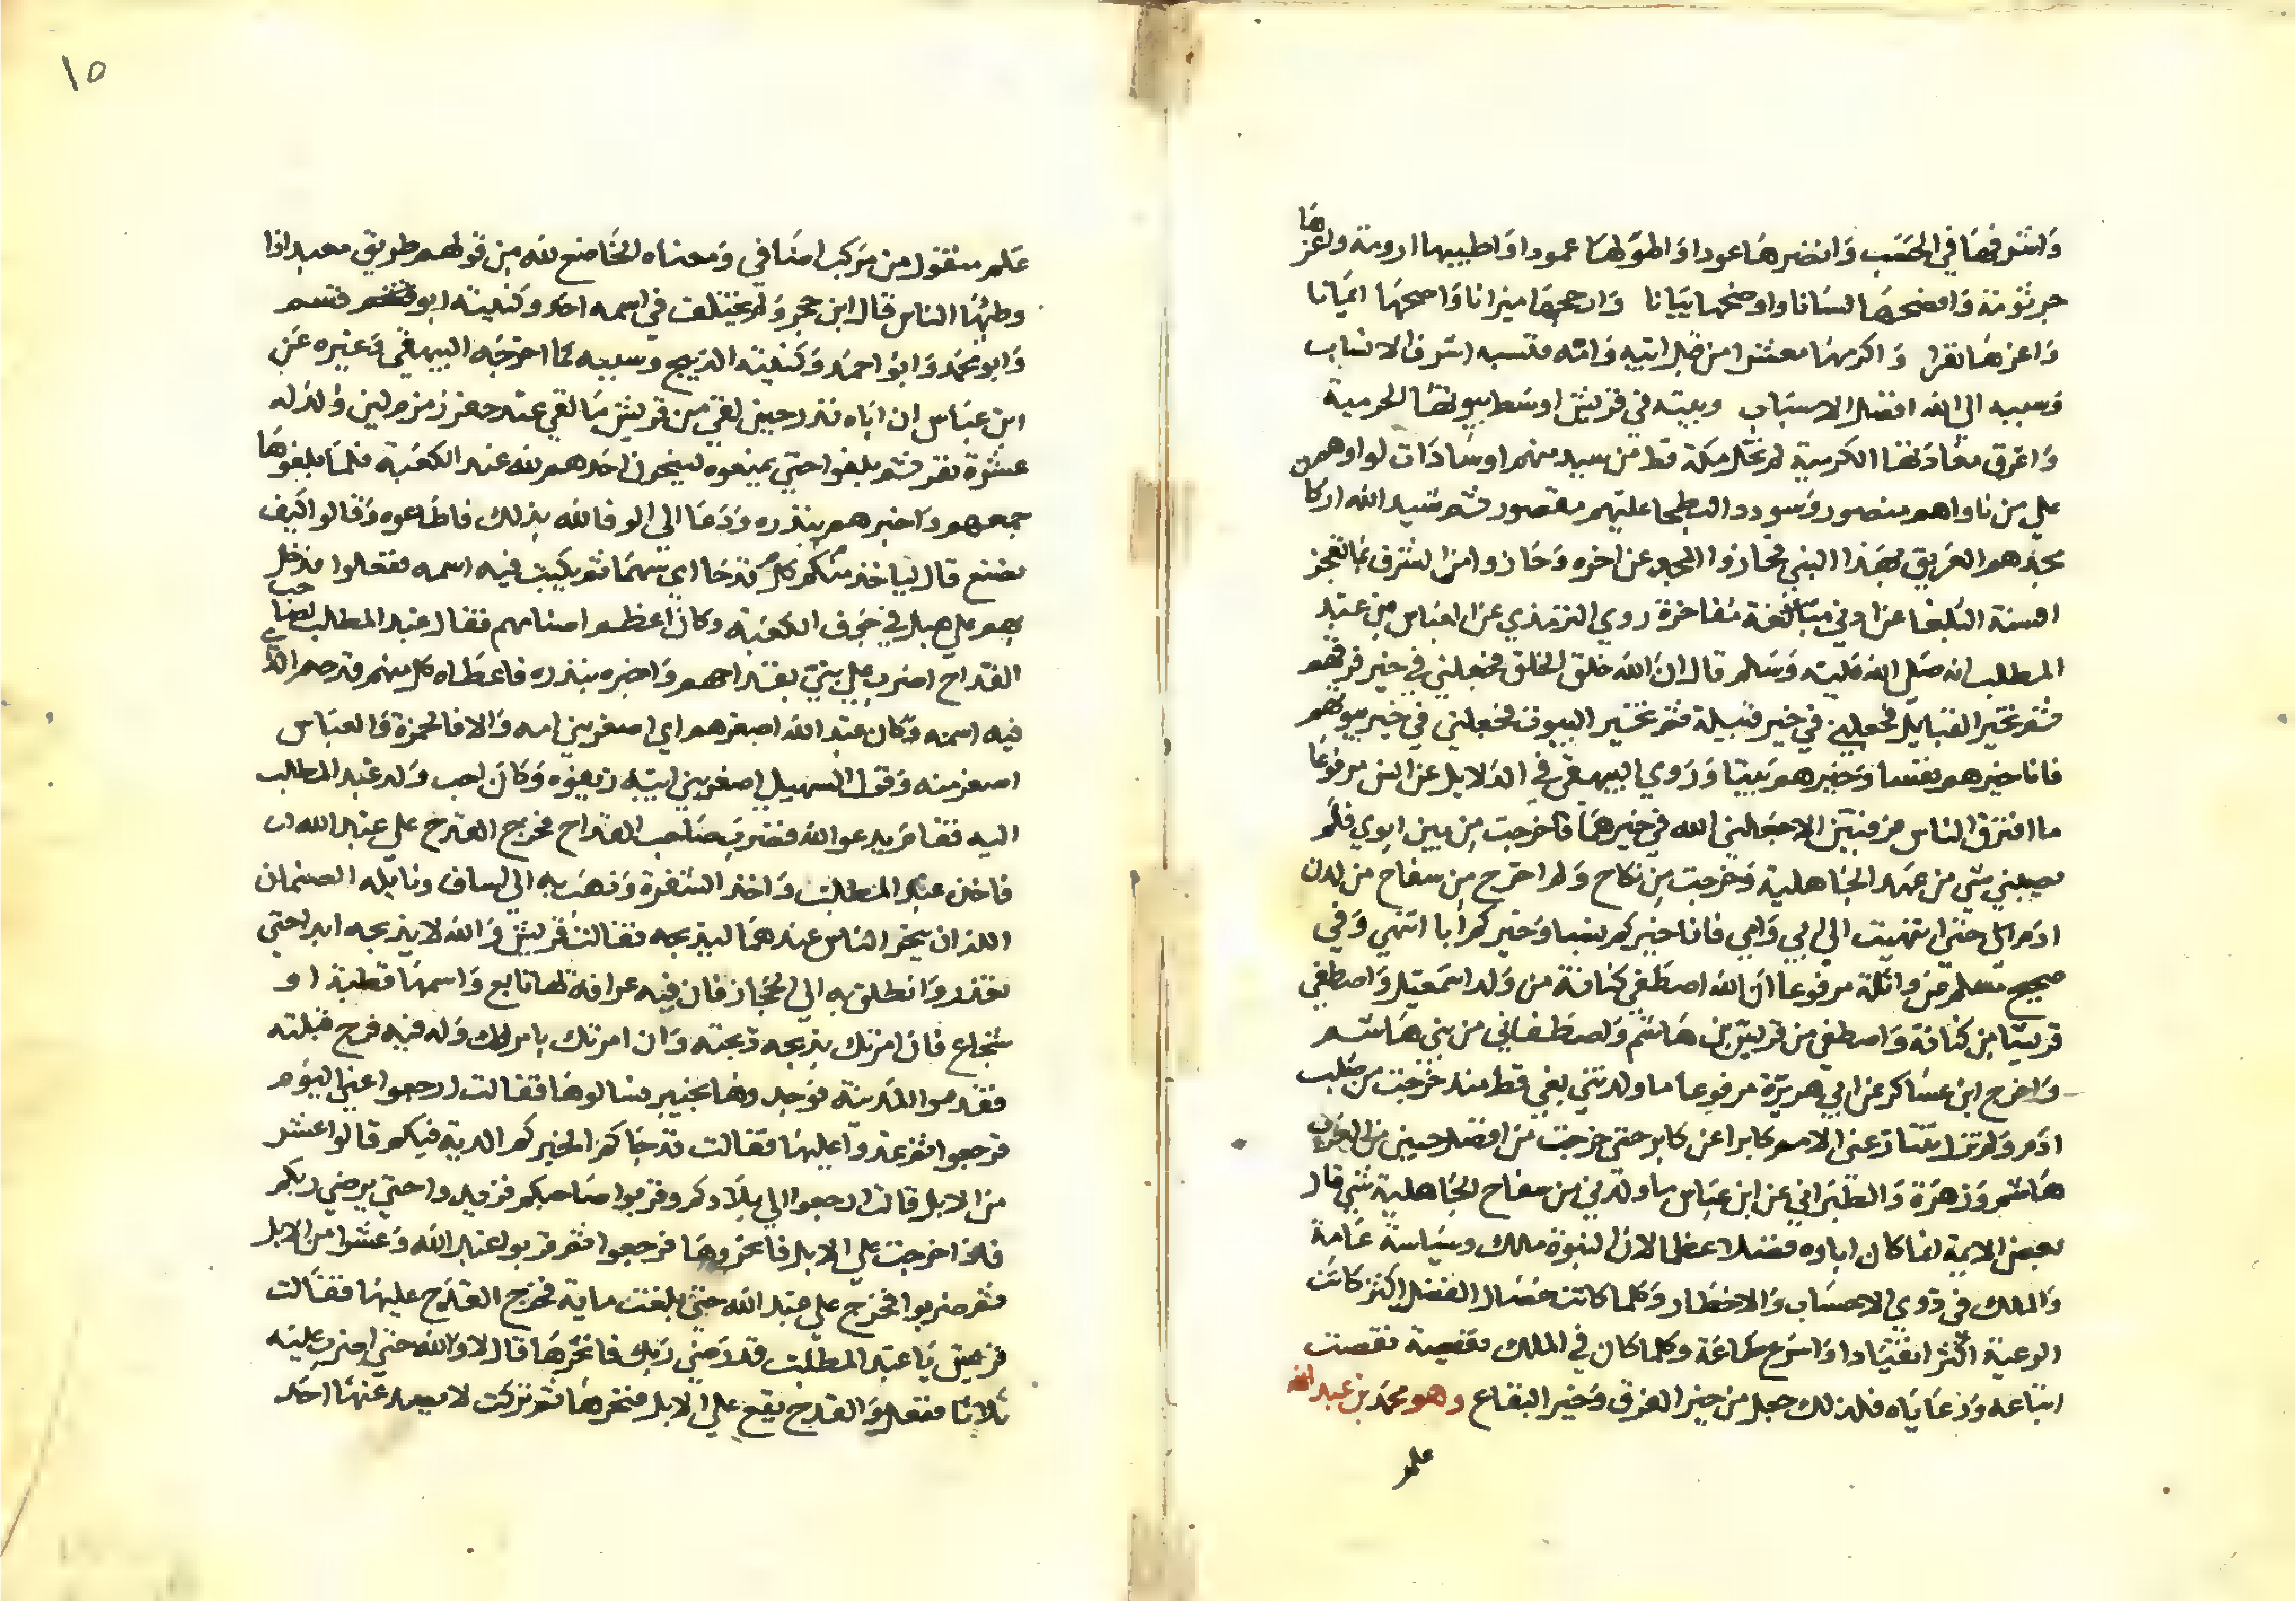 واشرفها في الحسب وانضرها عودا واطولها عمودا واطيبها ارومة واعزها
جرثومة وافصحها لسانا واوضحها بيانا وارجحها ميزانا واصحها ايمانا
واعزها نفرا واكرمها معشرا من قبل ابيه وامه فنسبه اشرف الانساب
وسببه الى الله افضل الاسباب وبيته في قريش اوسط بيوتها الحرمية
واعرق معادنها الكرمية لم تخل مكة قط من سيد منهم او سادات لواوهم
على من ناواهم منصور وسودد البطحا عليهم مقصور ثم شيد الله اركا
مجدهم العريق بهذا النبي فحازوا المجد عن اخره وحازوا من الشرف ما تعجز
السنة البلغا عن اوفى مبالغة مفاخرة روي الترمذي عن العباس بن عبد
المطلب انه صلى الله عليه وسلم قال ان الله خلق الخلق فجعلني في خير فرقهم
ثم تخير القبايل فجعلني في خير قبيلة ثم تخير البيوت فجعلني في خير بيوتهم
فانا خيرهم نفسا وخيرهم بيتا وروي البيهقي في الدلايل عن انس مرفوعا
ما افترق الناس فرقتين الا جعلني الله في خيرها فاخرجت من بين ابوي فلم
يصبني شي من عهد الجاهلية وخرجت من نكاح ولم اخرج من سفاح من لدن
ادم حتى انتهيت الى ابي وامي فانا خيركم نسبا وخيركم ابا انتهي وفي
صحيح مسلم عن واثلة مرفوعا ان الله اصطفي كنانة من ولد اسمعيل واصطفي
قريشا من كنانة واصطفي من قريش بني هاشم واصطفاني من بني هاشم
واخرج ابن عساكر عن ابي هريرة مرفوعا ما ولدتني بغي قط منذ خرجت من صلب
ادم ولم تزل تتنازعني الامم كابرا عن كابر حتى خرجت من افضل حيين من العرب
هاشم وزهرة والطبراني عن ابن عباس ما ولدني من سفاح الجاهلية شي قال
بعض الايمة لما كان اباوه فضلا عظما لان النبوة ملك وسياسة عامة
والملك في ذوي الاحساب والاخطار وكلما كانت خصال الفضل اكثر كانت
الرعية اكثر انقيادا واسرع طاعة وكلما كان في الملك نقيصة نقصت
اتباعه ورعاياه فلذلك جعل من خير الفرق وخير البقاع وهو محمد بن عبد الله
علم
١٥
علم منقول من مركب اضافي ومعناه الخاضع لله من قولهم طريق معبد اذا
وطيها الناس قال ابن حجر ولم يختلف في اسمه احد وكنيته ابو قثم
وابو محمد وابو احمد وكنيته الذبيح وسببه كما اخرجه البيهقي وغيره عن
ابن عباس ان اباه نذر حين لقي من قريش ما لقي عند حفر زمزم لين ولد له
عشرة نفر ثم بلغوا حتى يمنعوه لينحرن احدهم لله عند الكعبة فلما بلغوها
جمعهم واخبرهم بنذره ودعا الى الوفا لله بذلك فاطاعوه وقالوا كيف
نصنع قال لياخذ منكم كل قدحا اي سهما ثم يكتب فيه اسمه ففعلوا فدخل
بهم على هبل في جوف الكعبة وكان اعظم اصنامهم فقال عبد المطلب لصاحب
القداح اضرب على بني بقداحهم واخبره بنذره فاعطاه كل منهم قدحه الذي
فيه اسمه وكان عبد الله اصغرهم اي اصغر بني امه والا فالحمزة والعباس
اصغر منه وقول السهيلي اصغر بني ابيه وكان احب ولد عبد المطلب
اليه فقام يدعو الله فضرب صاحب القداح فخرج القدح على عبد الله
فاخذه عبد المطلب واخذ الشفرة وذهب به الى اساف ونايله الصنمان
اللذان ينحر الناس عندهما ليذبحه فقالت قريش والله لا يذبحه ابدا حتى
نعذر وانطلق به الى الحجاز فان فيه عرافة لها تابع واسمها قطبة او
شجاع فان امرتك بذبحه ذبحته وان امرتك بامر لك وله فيه فرج قبلته
فقدموا المدينة فوجدوها بخيبر فسالوها فقالت ارجعوا عني اليوم
فرجعوا ثم غدوا عليها فقالت قد جاكم الخبر كم الدية فيكم قالوا عشر
من الابل قالت ارجعوا الى بلادكم وقربوا صاحبكم فزيدوا حتى يرضي ربكم
فاذا خرجت على الابل فانحروها فرجعوا ثم قربوا عبد الله وعشرا من الابل
ثم ضربوا فخرج على عبد الله حتى بلغت ماية فخرج القدح عليها فقالت
قريش يا عبد المطلب قد رضي ربك فانحرها قال لا والله حتى اضرب عليه
ثلاثا ففعل والقدح يقع على الابل فنحرها ثم تركت لا يصد عنها احد